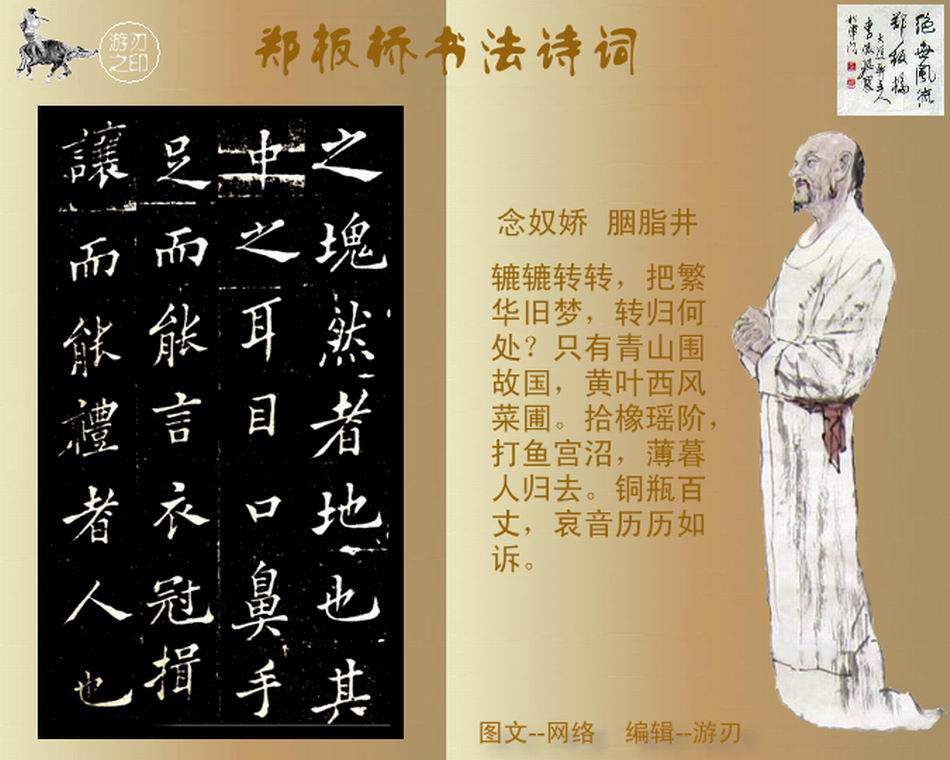 游刃
之印
郑板桥书法诗词
绝世风流
郑板桥
之塊然者地也其
中之耳目口鼻手
足而能言衣冠揖
讓而能禮者人也
念奴娇 胭脂井
辘辘转转，把繁
华旧梦，转归何
处？只有青山围
故国，黄叶西风
菜圃。拾橡瑶阶，
打鱼宫沼，薄暮
人归去。铜瓶百
丈，哀音历历如
诉。
图文--网络 编辑--游刃